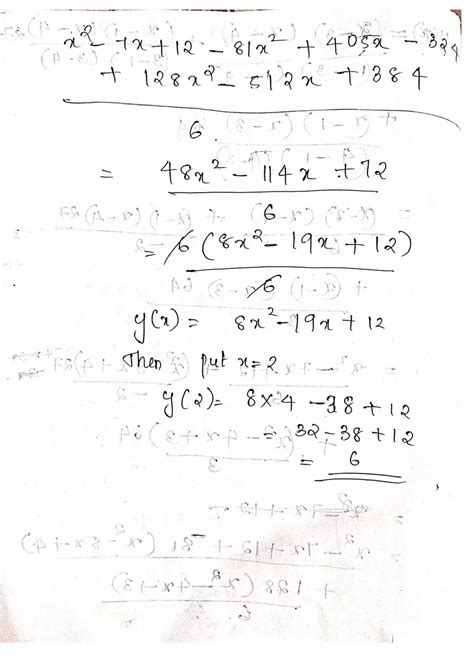 x² - 7x + 12 - 81x² + 405x - 324
+ 128x² - 512x + 384
6
= 48x² - 114x + 72
6
= 6 (8x² - 19x + 12)
6
y(x) = 8x² - 19x + 12
Then put x = 2
y(2) = 8×4 - 38 + 12
= 32 - 38 + 12
= 6